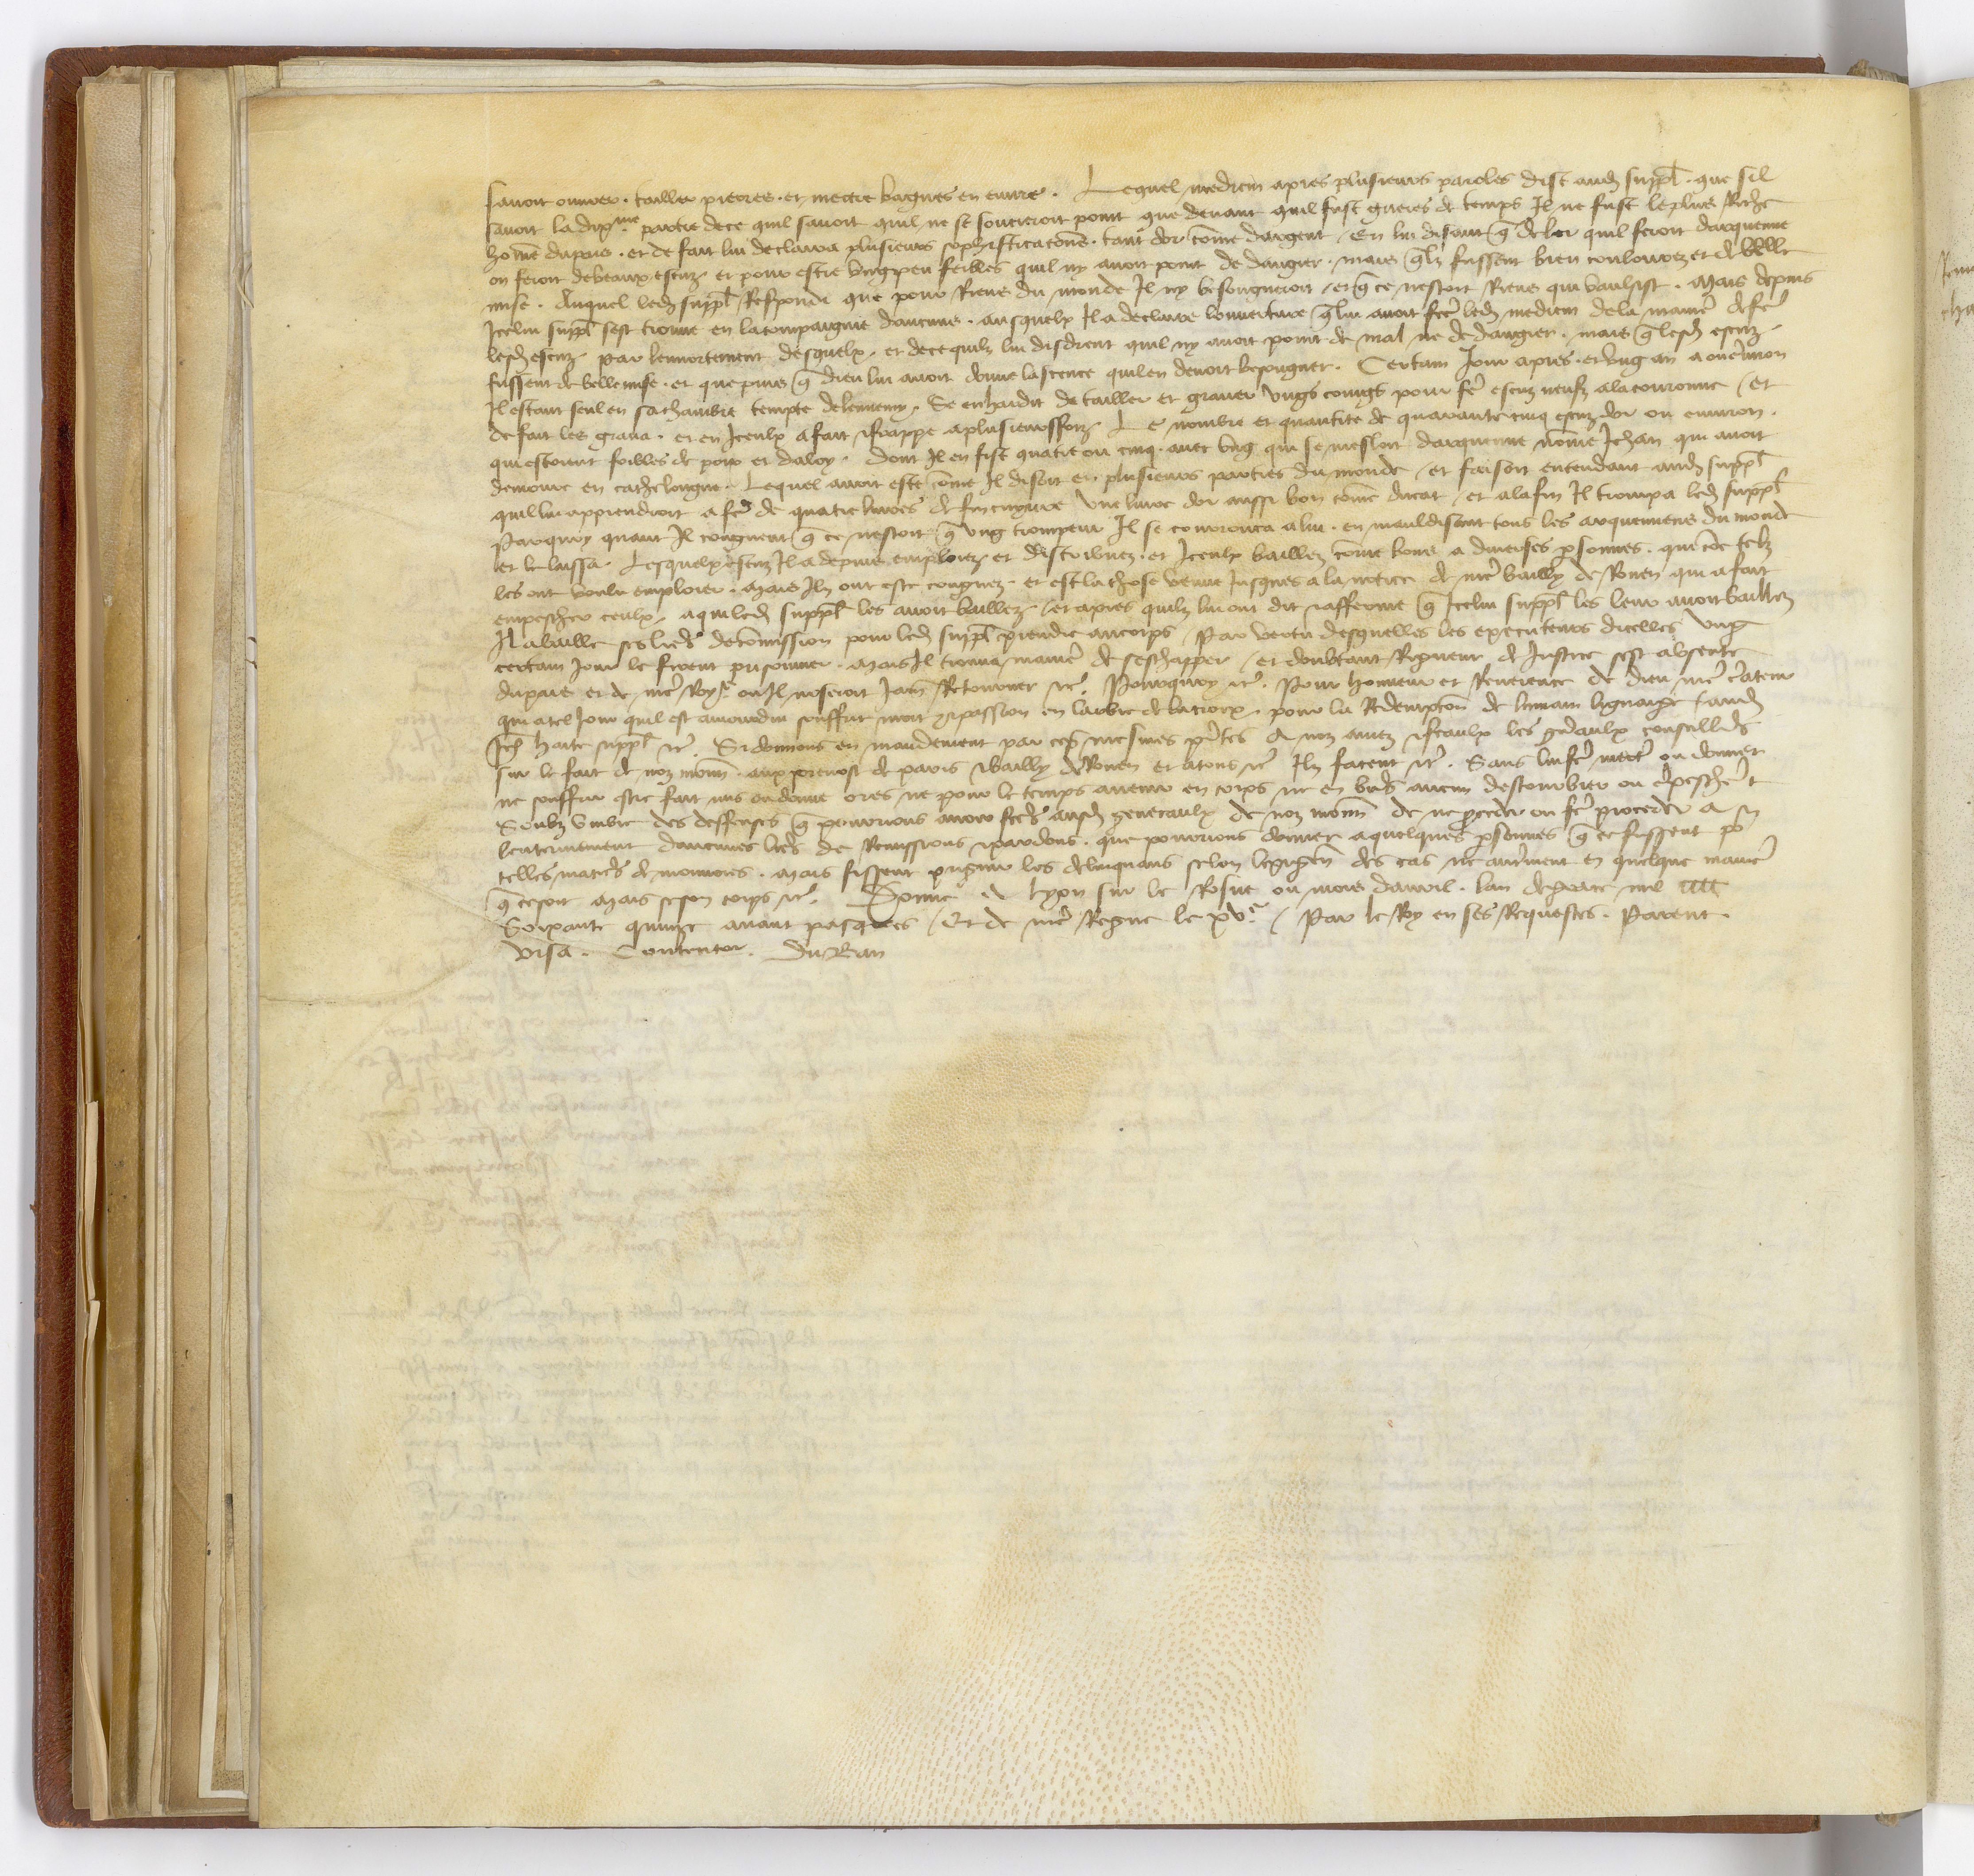 savoit ouvrer . tailler pierres . et mectre bagues en euvre . Lequel medicin apres plusieurs paroles dist aud suppl . que sil
savoit la dixme partie de ce quil savoit quil ne se soucieroit point que devant quil fust gueres de temps Il ne fust le plus Riche
home du pais . et de fait lui declaira plusieurs sophisticacons . tant dor come dargent / En lui disant q de lor quil feroit darquemie
on feroit de beaux escuz et pour estre ung peu feibles quil ny avoit point de dangier . mais qlz fussent bien coulourez et de belle
mise . Auquel led suppl Respondi que pour Riens du monde Il ny besongneroit / et q ce nestoit Riens qui vaulsist . Mais depuis
Icelui suppl sest trouve en la compaignie daucuns . ausquelx Il a declaire louverture q lui avoit fce led medicin de la manie de fe
lesd escuz . par lennortement desquelx . et de ce quilz lui disdrent quil ny avoit point de mal ne de dangier . mais q lesd escuz
fussent de belle mise . et que puis q dieu lui avoit donne la science quil en devoit besongner . Certain Jour apres . et ung an a ou environ
Il estant seul en sa chambre tempte de lennemy . Se enhardit de tailler et graver ungs coings pour fe escuz neufz a la couronne / et
de fait les grava . et en Iceulx a fait frappe a plusieurs foiz Le nombre et quantite de quarante cinq escuz dor ou environ .
qui estoient foibles de poix et daloy . dont Il en fist quatre ou cinq . avec ung qui se mesloit darquemie nome Jehan qui avoit
demoure en cathelongne . Lequel avoit este come Il disoit en plusieurs parties du monde / et faisoit entendant aud suppl
quil lui apprendroit a fe de quatre livres de fin cuyvre une livre dor aussi bon come ducat / et a la fin Il trompa led suppl
Parquoy quant Il congneut q ce nestoit q ung trompeur Il se courrouca a lui . en mauldisant tous les arquemiens du monde
et le laissa . Lesquelx escuz Il a depuis emploiez et distribuez . et Iceulx baillez come bons a diverses psonnes . qui coe telz
les ont voulu emploier . mais Ilz ont este congnuz . et est la chose venue Jusques a la notice de nre bailly de Rouen qui a fait
empescher ceulx . a qui led suppl les avoit baillez / et apres quilz lui ont dit afferme q Icelui suppl les leur avoit baillez
Il a baille ses lres de comission pour led suppl prendre au corps / Par vertu desquelles les executeurs dicelles ung
certain Jour le firent prisonnier . mais Il trouva manie de seschapper / et doubtant Rigueur de Justice sest absente
du pais et de nre Roye ou Il noseroit Jam Retourner etc Pourquoy etc . Pour honneur et Reverence de dieu nre createur
qui a tel Jour quil est aujourdui souffrit mort passion en larbre de la croix . pour la Redempcon de lumain lignaige / aud
Jeh haite suppl etc . Si donnons en mandement par ces mesmes pntes A noz amez feaulx les gnaulx conseilles
sur le fait de noz monn . aux prevost de paris bailly de Rouen et a tous etc Ilz facent etc . Sans lui fe mect ou donner
ne souffrir estre fait mis ou donne ores ne pour le temps avenir en corps ne en biens aucun destourbier ou epeschet
Soubz umbre des deffenses q pourrions avoir fces ausd generaulx de noz monn de ne proceder ou fe proceder A
lenterinement daucunes lres de Remissions pardons . que pourrions donner a quelques psonnes q ce fussent po
telles maties de monnoies . mais fissent pugnir les delinquans selon lexigen des cas ne autrement en quelque manie
q ce soit mais se son corps etc . Donne A lyon sur le Rosne ou mois davril . lan de grace mil cccc
Soixante quinze avant pasques / Et de nre Regne le xve / Par le Roy en ses Requestes . Parent .
visa . Contentor . Du Ban